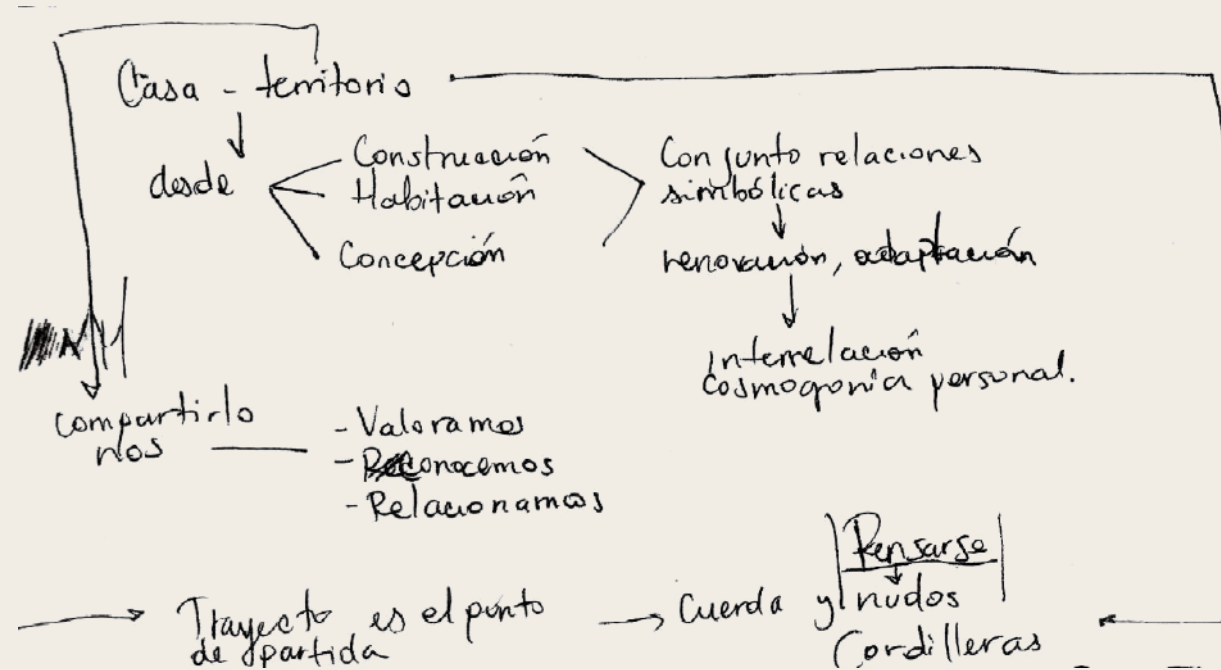 Casa - territorio
desde
Construcción
Habitación
Concepción
Conjunto relaciones
simbólicas
renovación, adaptación
Interrelación
cosmogonía personal.
compartirlo
nos
- Valoramos
- Reconocemos
- Relacionamos
Trayecto es el punto
de partida
Pensarse
Cuerda y nudos
Cordilleras